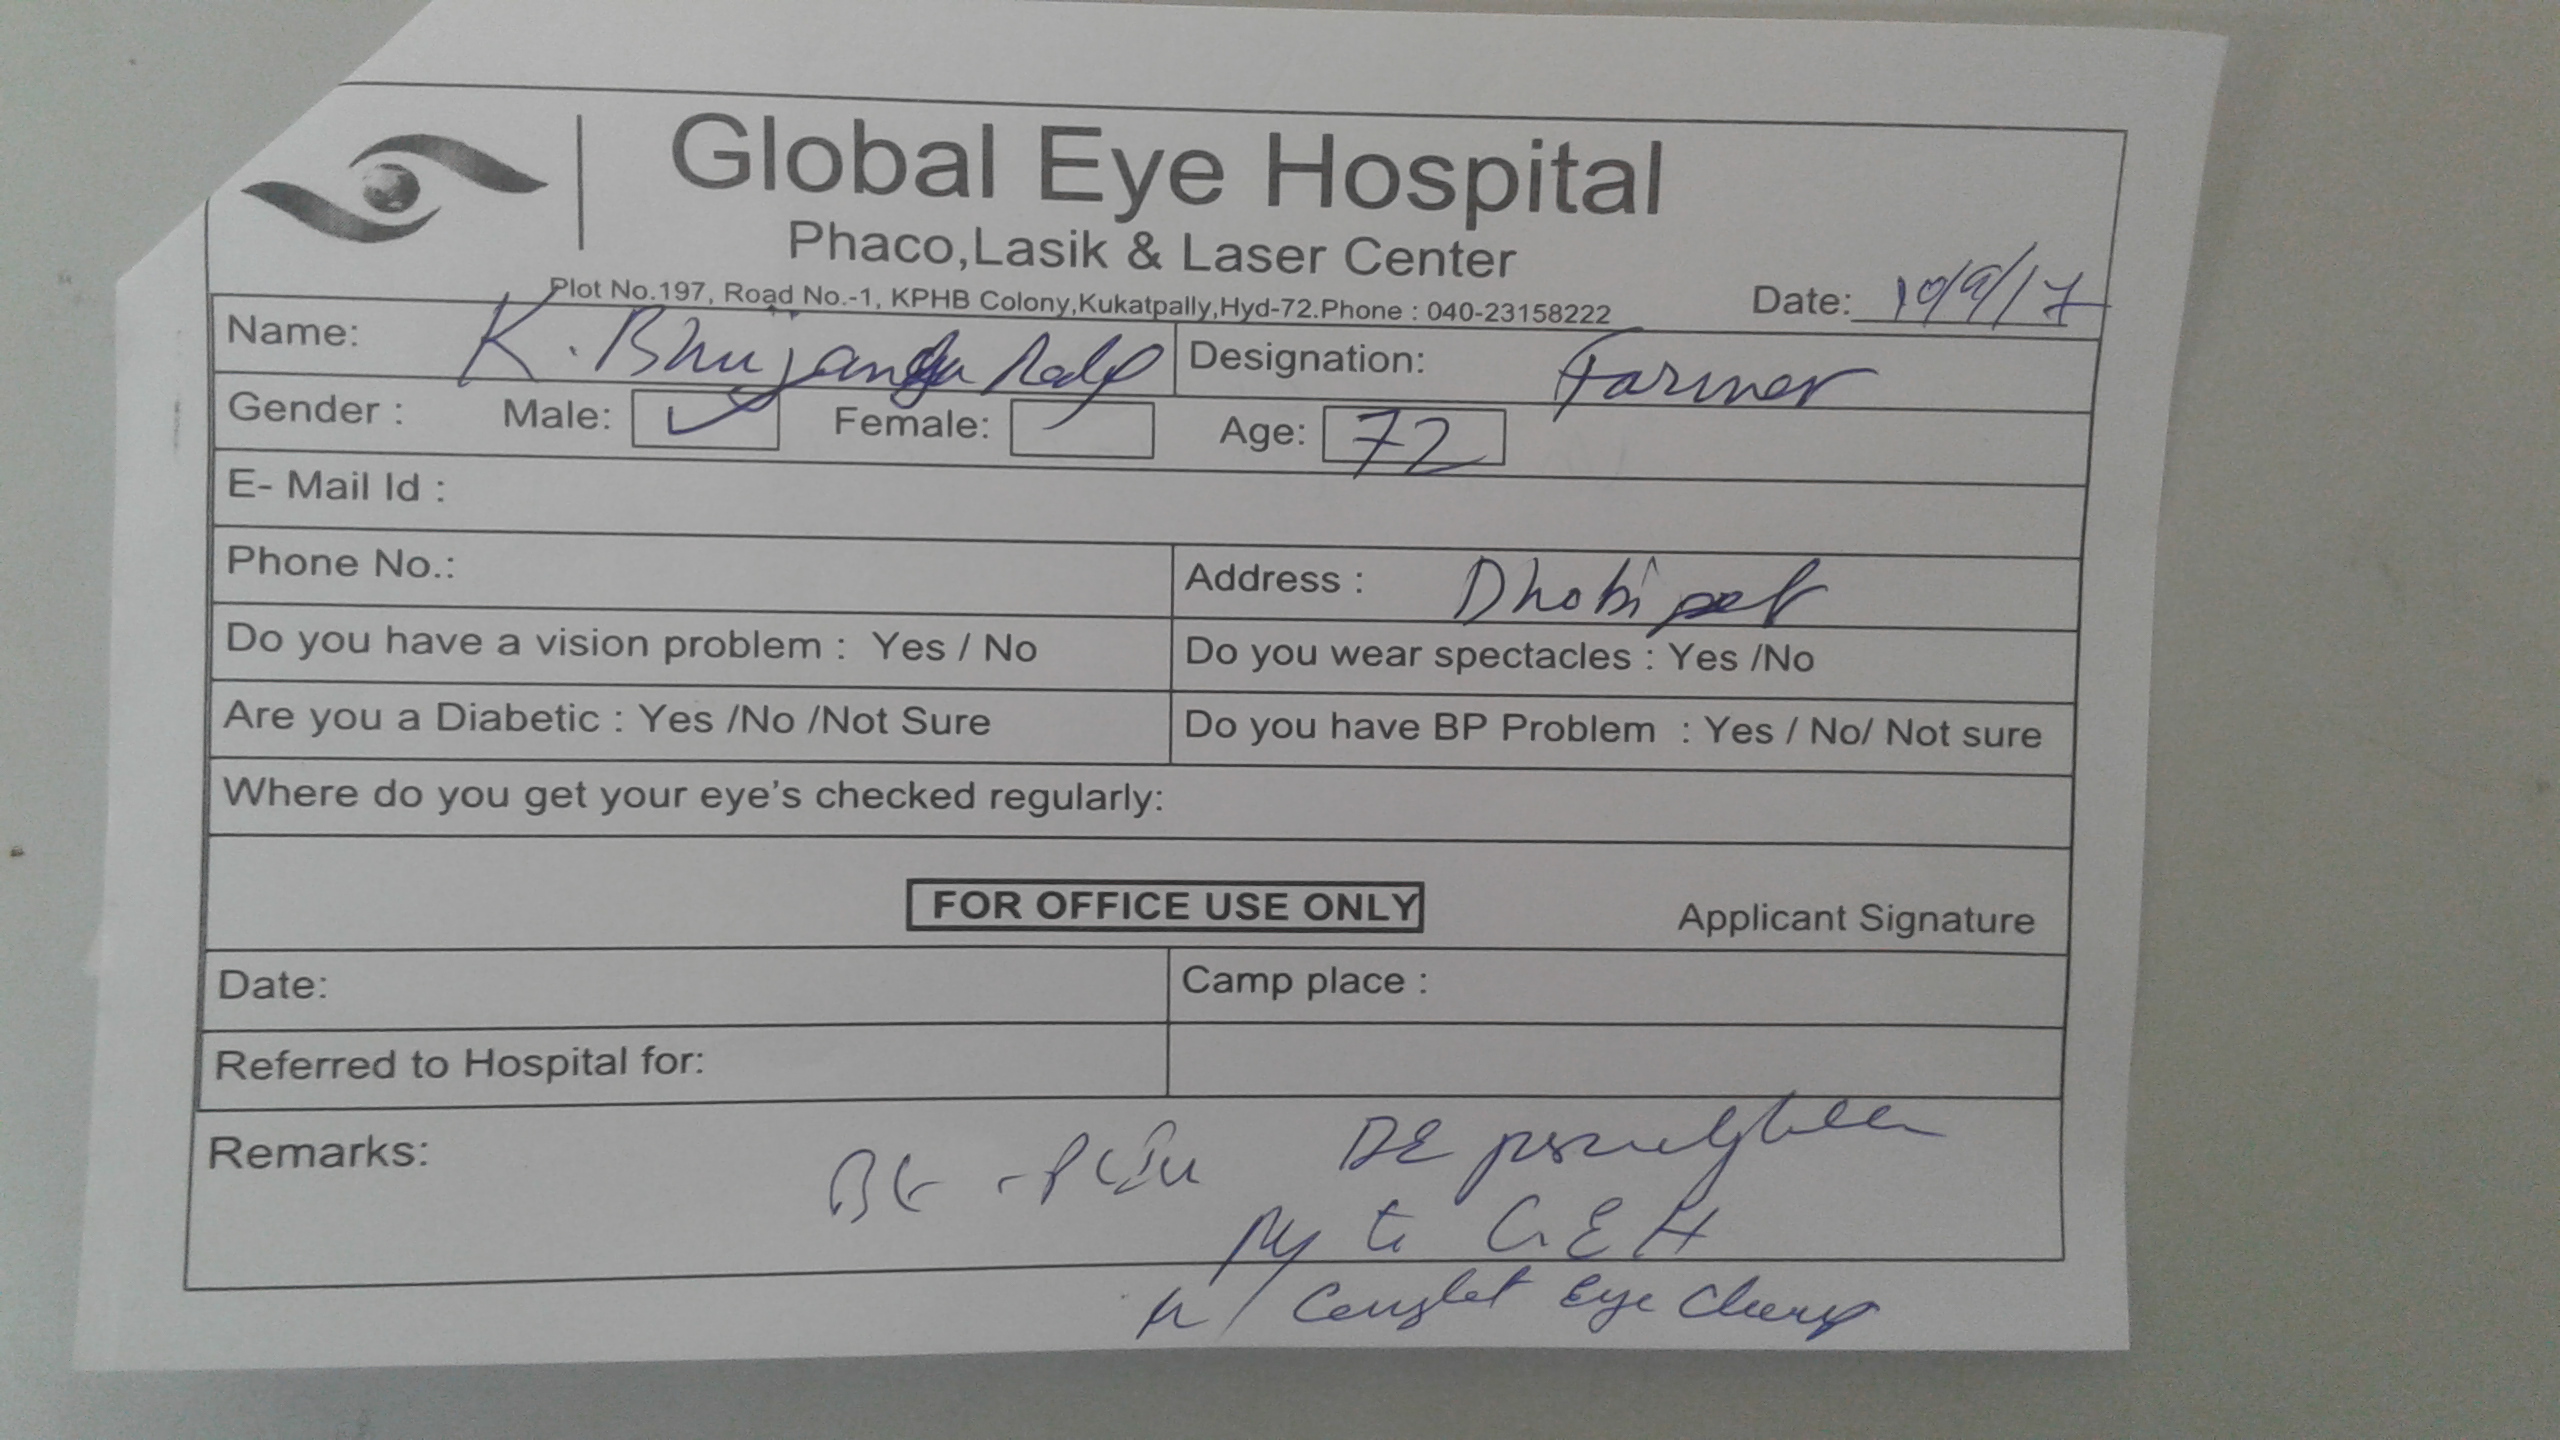 Global Eye Hospital
Phaco,Lasik & Laser Center
Plot No.197, Road No.-1, KPHB Colony,Kukatpally,Hyd-72.Phone : 040-23158222
Date: 10/9/17
Name: K. Bhujanga Redy
Designation: Farmer
Gender : Male: ✓ Female: Age: 72
E- Mail Id :
Phone No.:
Address : Dhobi pet
Do you have a vision problem : Yes / No
Do you wear spectacles : Yes /No
Are you a Diabetic : Yes /No /Not Sure
Do you have BP Problem : Yes / No/ Not sure
Where do you get your eye's checked regularly:
FOR OFFICE USE ONLY
Applicant Signature
Date:
Camp place :
Referred to Hospital for:
Remarks:
BE
to GEH
Eye